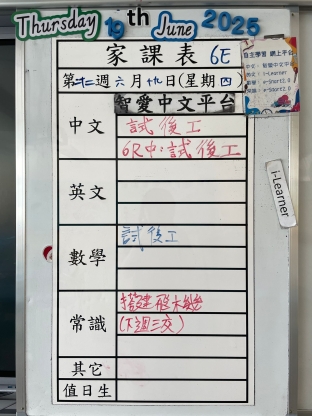 Thursday 19th June 2025
家課表 6E
自主學習 網上平台
中文:智愛中文平台
英文:i-Learner
數學:e-Smart2.0
常識:e-Smart2.0
週六月十九日(星期四
智愛中文平台
中文
試後工
6R中:試後工
i-Learner
英文
數學
試後工
常識
搭建飛機
(下週三交)
其它
值日生